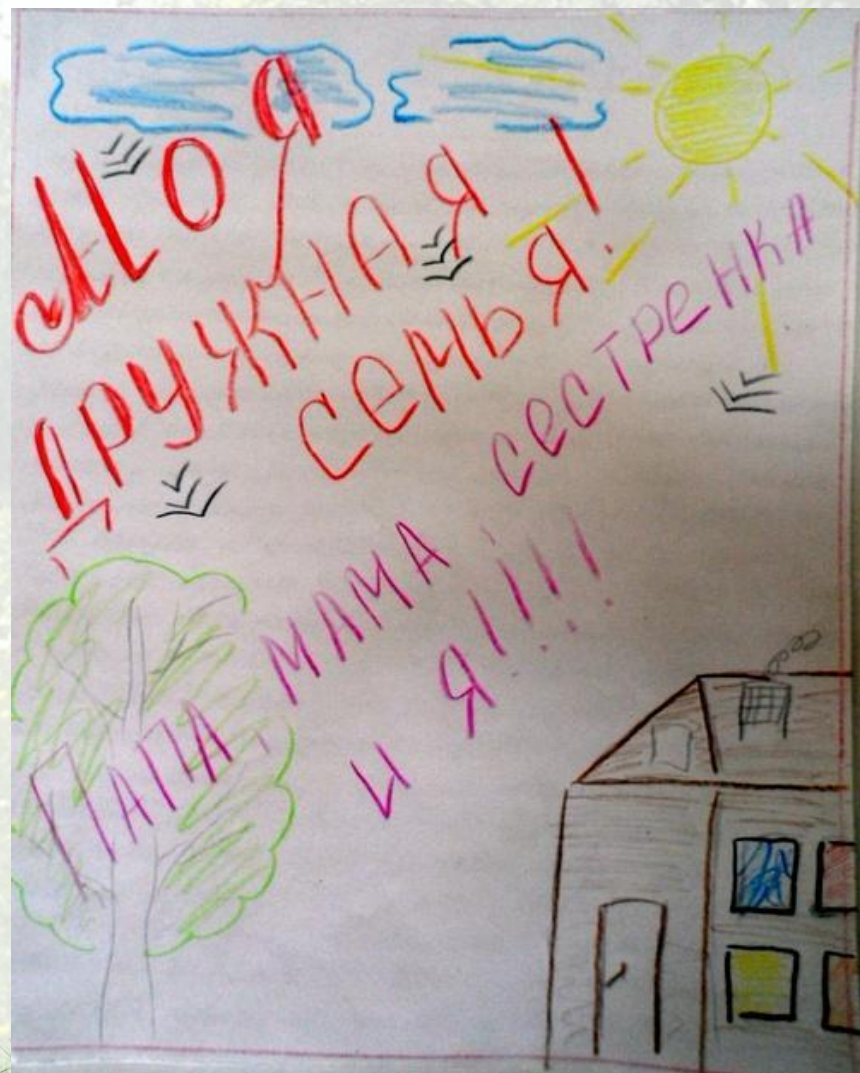 МОЯ
ДРУЖНАЯ
СЕМЬЯ!
ПАПА, МАМА, СЕСТРЕНКА
И Я!!!!